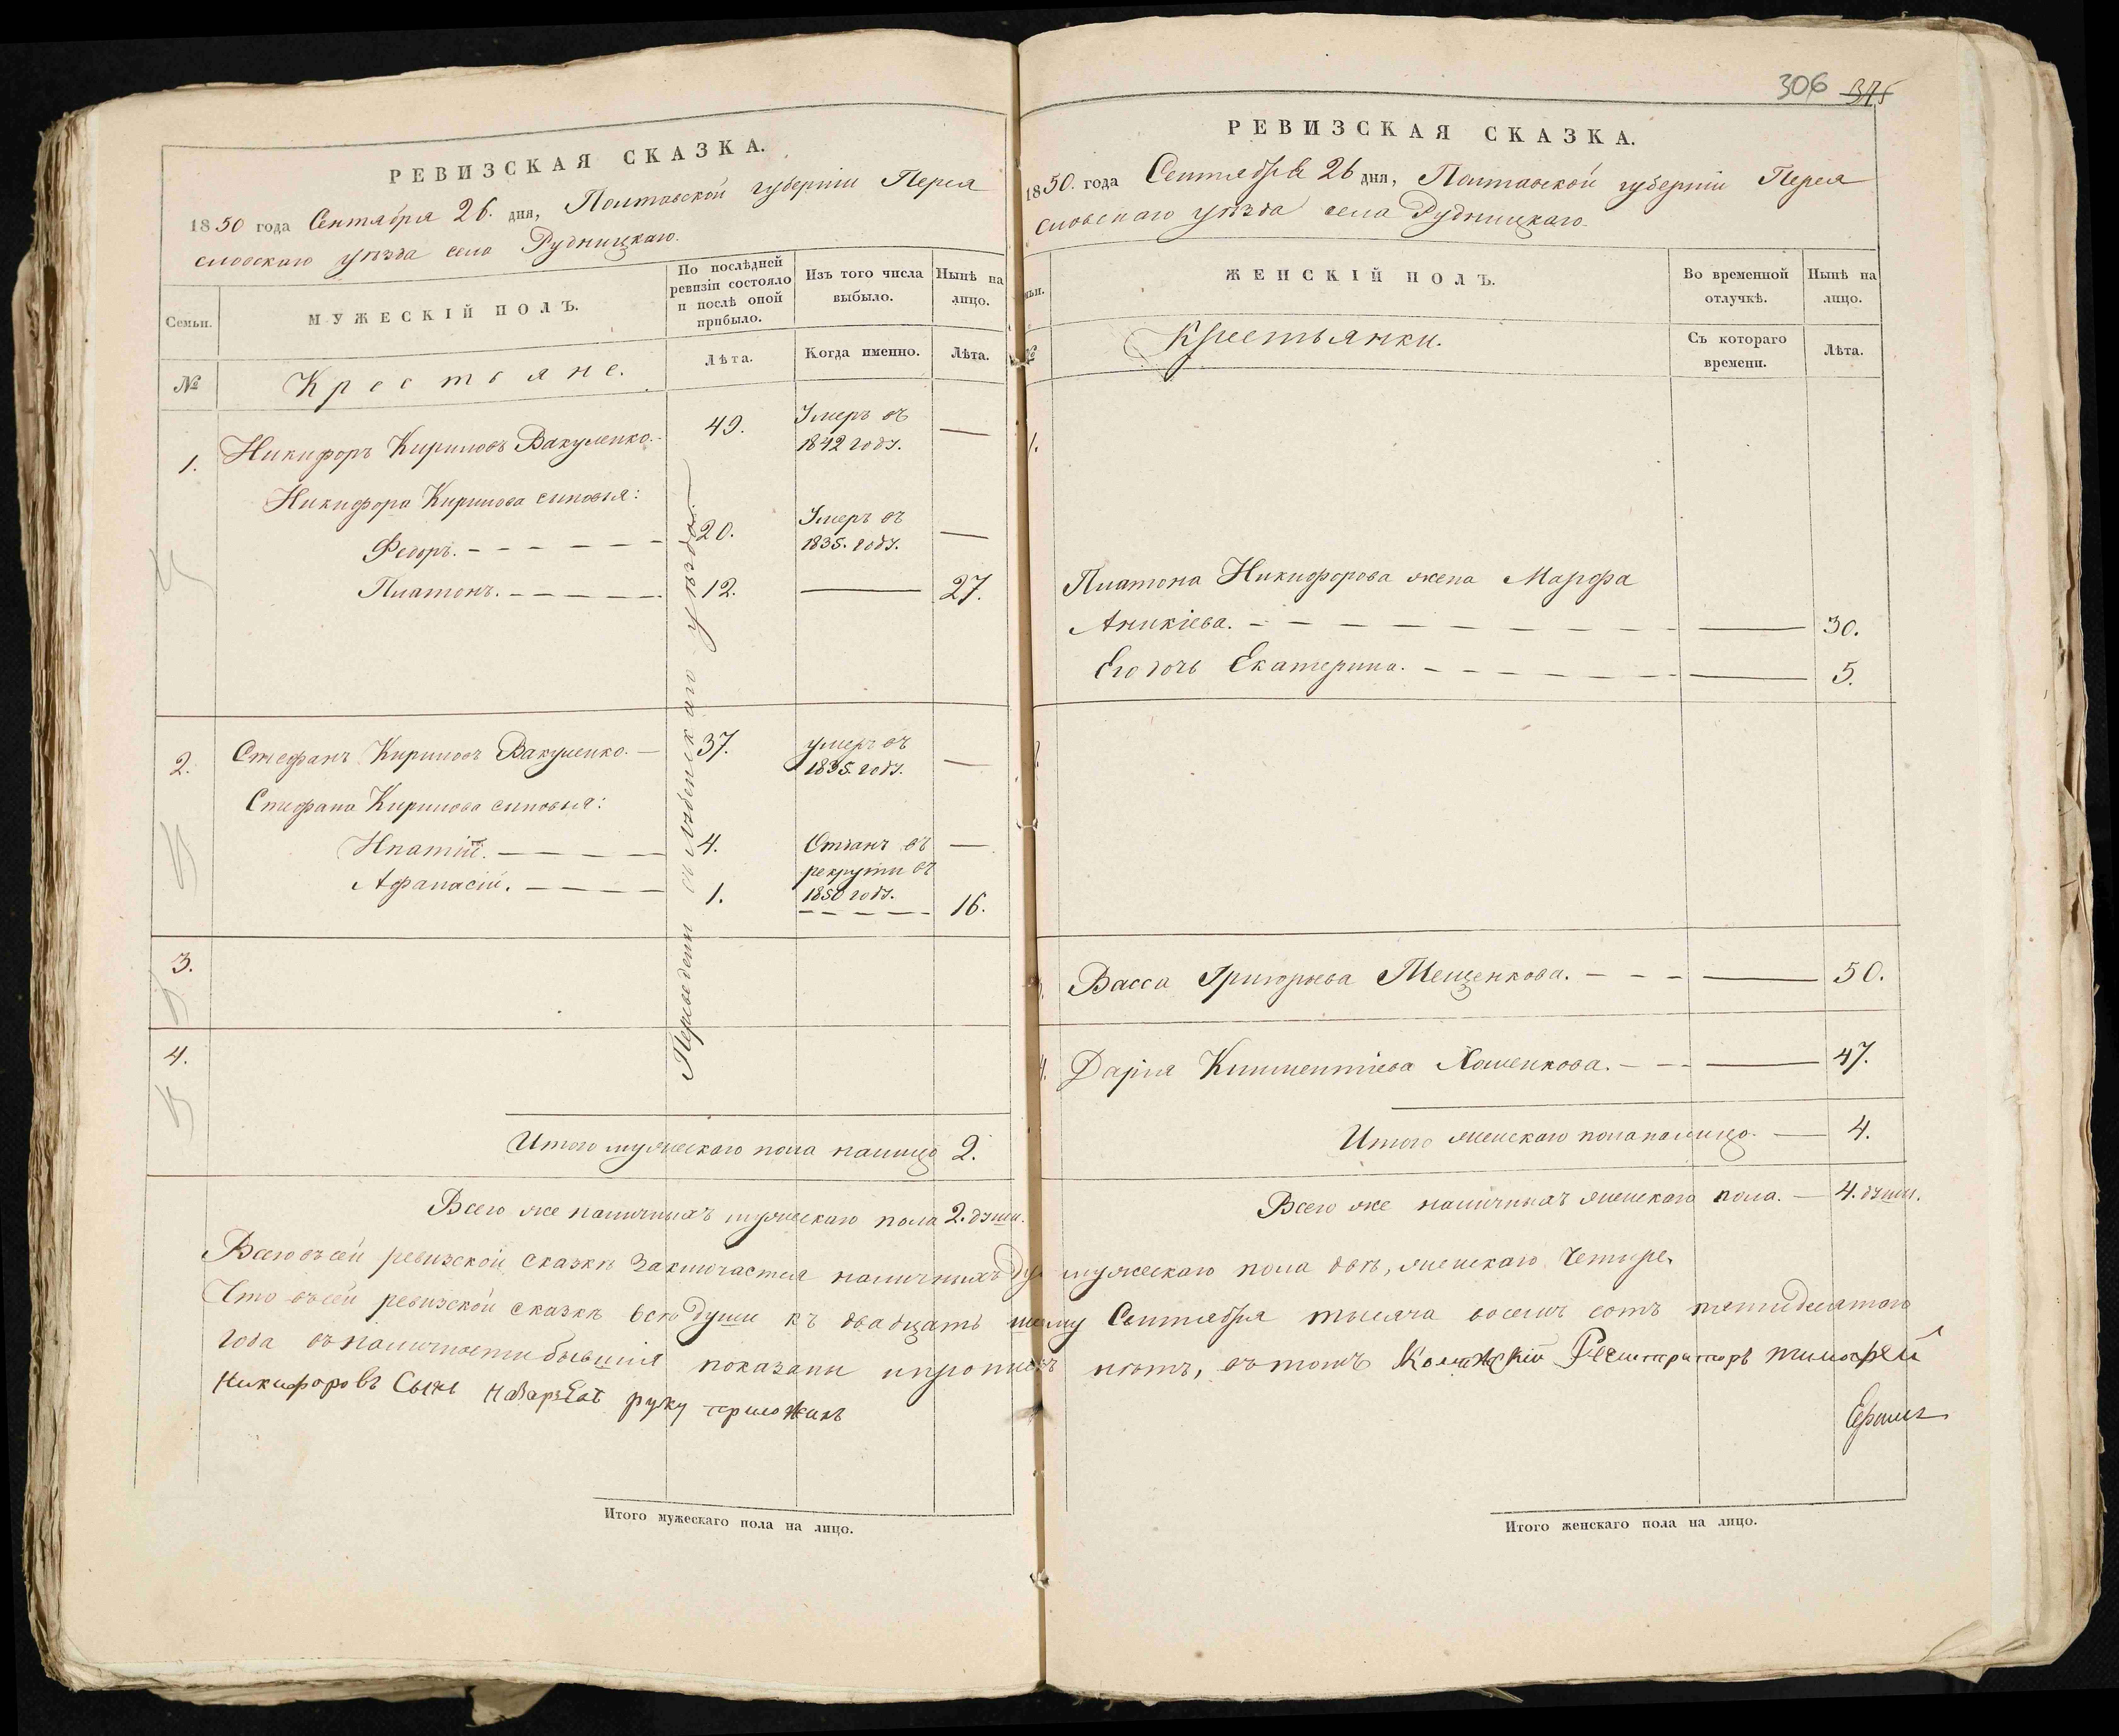 РЕВИЗСКАЯ СКАЗКА.
1850 года Сентября 26. дня, Полтавской губерніи Перея
словскаго уѣзда села Рудницкаго.
Семьи.
МУЖЕСКІЙ ПОЛЪ.
По послѣдней
ревизіи состояло
и послѣ оной
прибыло.
Изъ того числа
выбыло.
Нынѣ на
лицо.
№
Крестьяне.
Лѣта.
Когда именно.
Лѣта.
1. Никифоръ Кириловъ Вакуленко. 49. Умеръ въ
1842 году. —
Никифора Кирилова сыновья:
Федоръ. 20. Умеръ въ
1835. году. —
Платонъ. 12. — 27.
2. Стефанъ Кириловъ Вакуленко. — 37. умеръ въ
1835. году. —
Стефана Кирилова сыновья:
Ипатій. 4. Отданъ въ —
рекруты въ
1850 году.
Афанасій. 1. 16.
Переведены съ Лубенскаго уѣзда.
3.
4.
Итого мужескаго пола налицо 2.
Всего же наличныхъ мужескаго пола 2. души.
306 375
РЕВИЗСКАЯ СКАЗКА.
1850. года Сентября 26 дня, Полтавской губерніи Перея
словскаго уѣзда села Рудницкаго.
ЖЕНСКІЙ ПОЛЪ.
Во временной
отлучкѣ.
Нынѣ на
лицо.
№
Крестьянки.
Съ котораго
времени.
Лѣта.
1.
Платона Никифорова жена Марфа
Аникіева. — 30.
Его дочь Екатерина. — 5.
Васса Григорьева Тещенкова. — 50.
4. Дарія Климентіева Хоменкова. — 47.
Итого женскаго пола налицо. — 4.
Всего же наличныхъ женскаго пола. — 4. души.
Всего въ сей ревизской сказкѣ заключается наличныхъ ду мужескаго пола двѣ, женскаго четыре,
Что въ сей ревизской сказкѣ всѣ души къ двадцать шестому Сентября тысяча восемь сотъ пятидесятого
года въ наличности бывшія показаны и прописныхъ нѣтъ, въ томъ Колежскій Регистраторъ Тимофей
Никифоровъ Сынъ руку приложилъ
Итого мужескаго пола на лицо.
Итого женскаго пола на лицо.